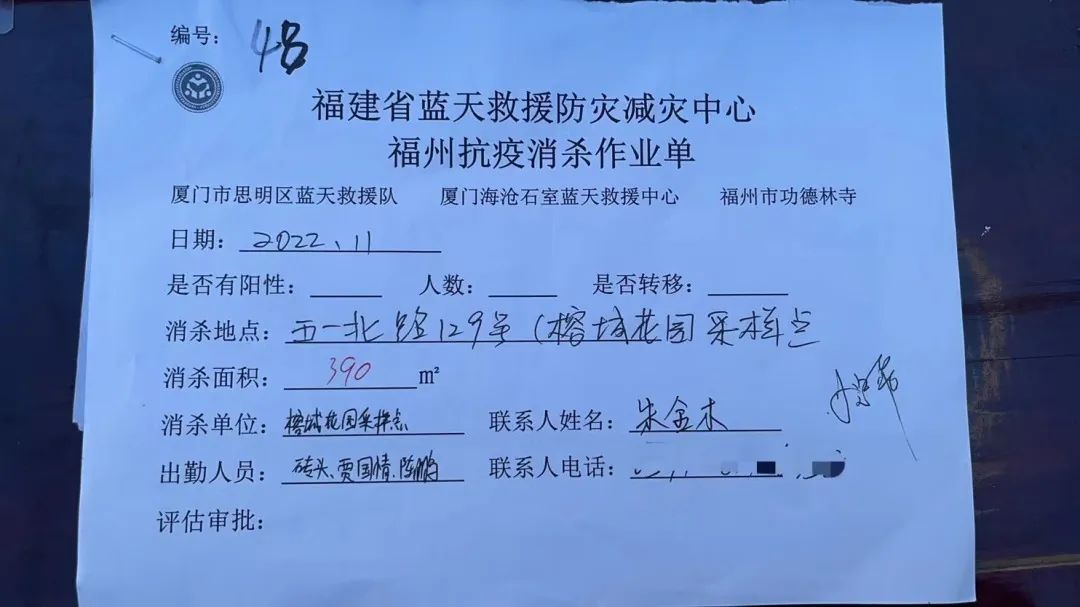 编号：48
福建省蓝天救援防灾减灾中心
福州抗疫消杀作业单
厦门市思明区蓝天救援队 厦门海沧石室蓝天救援中心 福州市功德林寺
日期：2022、11
是否有阳性： 人数： 是否转移：
消杀地点：五一北路129号（榕城花园采样点
消杀面积：390 m²
消杀单位：榕城花园采样点 联系人姓名：朱金木
出勤人员：砖头、贾国情、陈鹏 联系人电话：
评估审批：